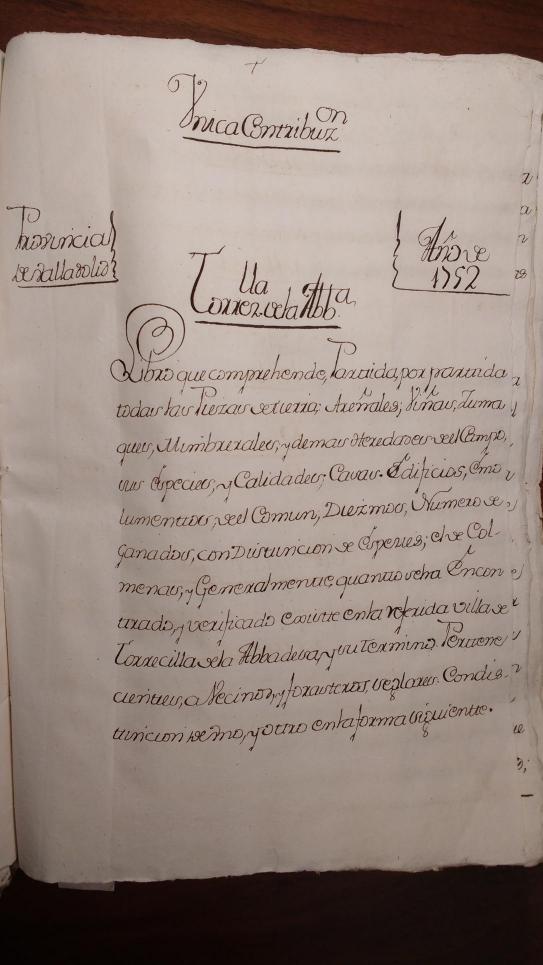 Vnica Contribuz.on
Provincia
de Valladolid
Año de
1752
Torrez.lla de la Abb.a
Libro que comprehende, Partida, por partida
todas las Piezas de tierra; Areñales; Viñas, Zuma
ques, Mimbrerales, y demas Heredades de el Campo,
sus Especies, y Calidades; Casas. Edificios, Emo
lumentos, de el Comun, Diezmos, Numero de
Ganados, con Distincion de Especies; el de Col-
menas, y Generalmente quanto se ha Encon
trado, y verificado existte en la referida villa de
Torrecilla de la Abbadesa, y su Termino. Pertene
cienttes, a Vecinos, y forasteros, seglares. Condis-
tincion de uno, y otro en la forma siguiente.